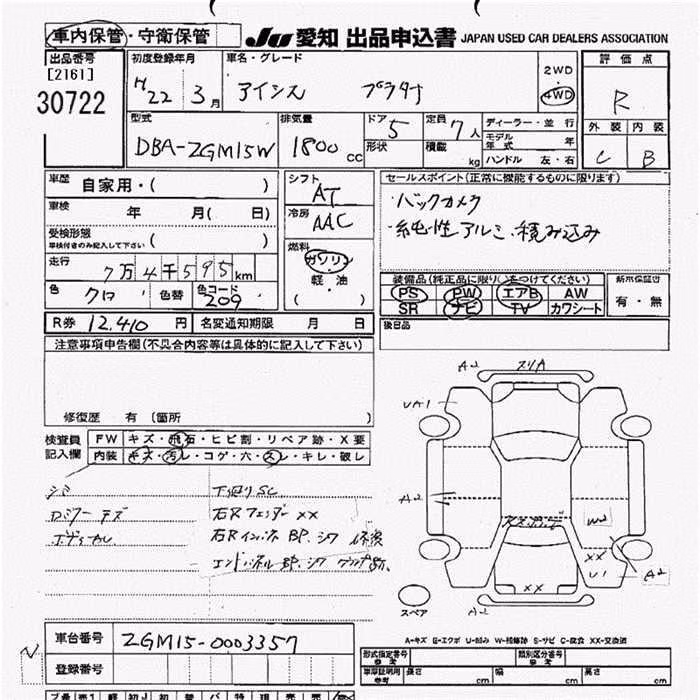 車内保管・守衛保管 JU 愛知 出品申込書 JAPAN USED CAR DEALERS ASSOCIATION
出品番号 [2161] 30722
初度登録年月 H22 3月
車名・グレード アイシス プラタナ
2WD 4WD
評価点 R
外装 C 内装 B
型式 DBA-ZGM15W
排気量 1800cc
ドア 5 形状
定員 7人 積載 kg
ディーラー・並行
モデル年式 年
ハンドル 左・右
車歴 自家用・( )
車検 年 月( 日)
受検形態 車検付きのみ記入して下さい ( )
走行 7万4千595km
色 クロ 色替 色コード 209
シフト AT
冷房 AAC
燃料 ガソリン 軽・油 ( )
セールスポイント(正常に機能するものに限ります)
・バックカメラ
・純・性アルミ、積み込み
装備品(純正品に限り○をつけてください)
PS PW エアB AW
SR ナビ TV カワシート
新車保証書 有・無
後日品
R券 12,410円 名変通知期限 月 日
注意事項申告欄(不具合内容等は具体的に記入して下さい)
修復歴 有 (箇所 )
検査員記入欄
FW キズ・飛石・ヒビ割・リペア跡・X要
内装 キズ・汚レ・コゲ・穴・スレ・キレ・破レ
シミ
Dミラーキズ
下廻りSC
右Rフェンダー XX
右Rインパネ BP.シワ 修復
エンドパネル BP.シワ
A2
UA1
A2
XX
W2
XX
U1
A2
XX
A2
スペア
A-キズ E-エクボ U-凹み W-補修跡 S-サビ C-腐食 XX-交換済
車台番号 ZGM15-0003357
登録番号
型式指定番号 参考
類別区分番号 参考
車庫証明用 参考 長さ cm 幅 cm 高さ cm